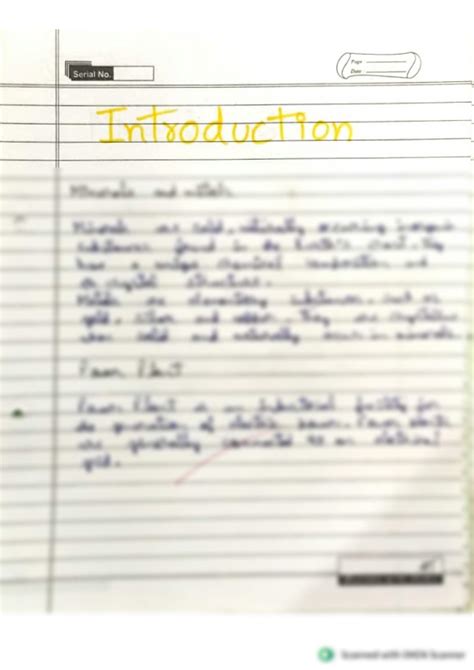 Serial No.
Page
Date
Introduction
Minerals and metals
Minerals are solid, naturally occurring inorganic
substances found in the Earth's crust. They
have a unique chemical composition and
or crystal structure.
Metals are elementary substances, such as
gold, silver and copper. They are crystalline
when solid and naturally occurs in minerals.
Power Plant
Power Plant is an industrial facility for
the generation of electric power. Power plants
are generally connected to an electrical
grid.
Scanned with OKEN Scanner